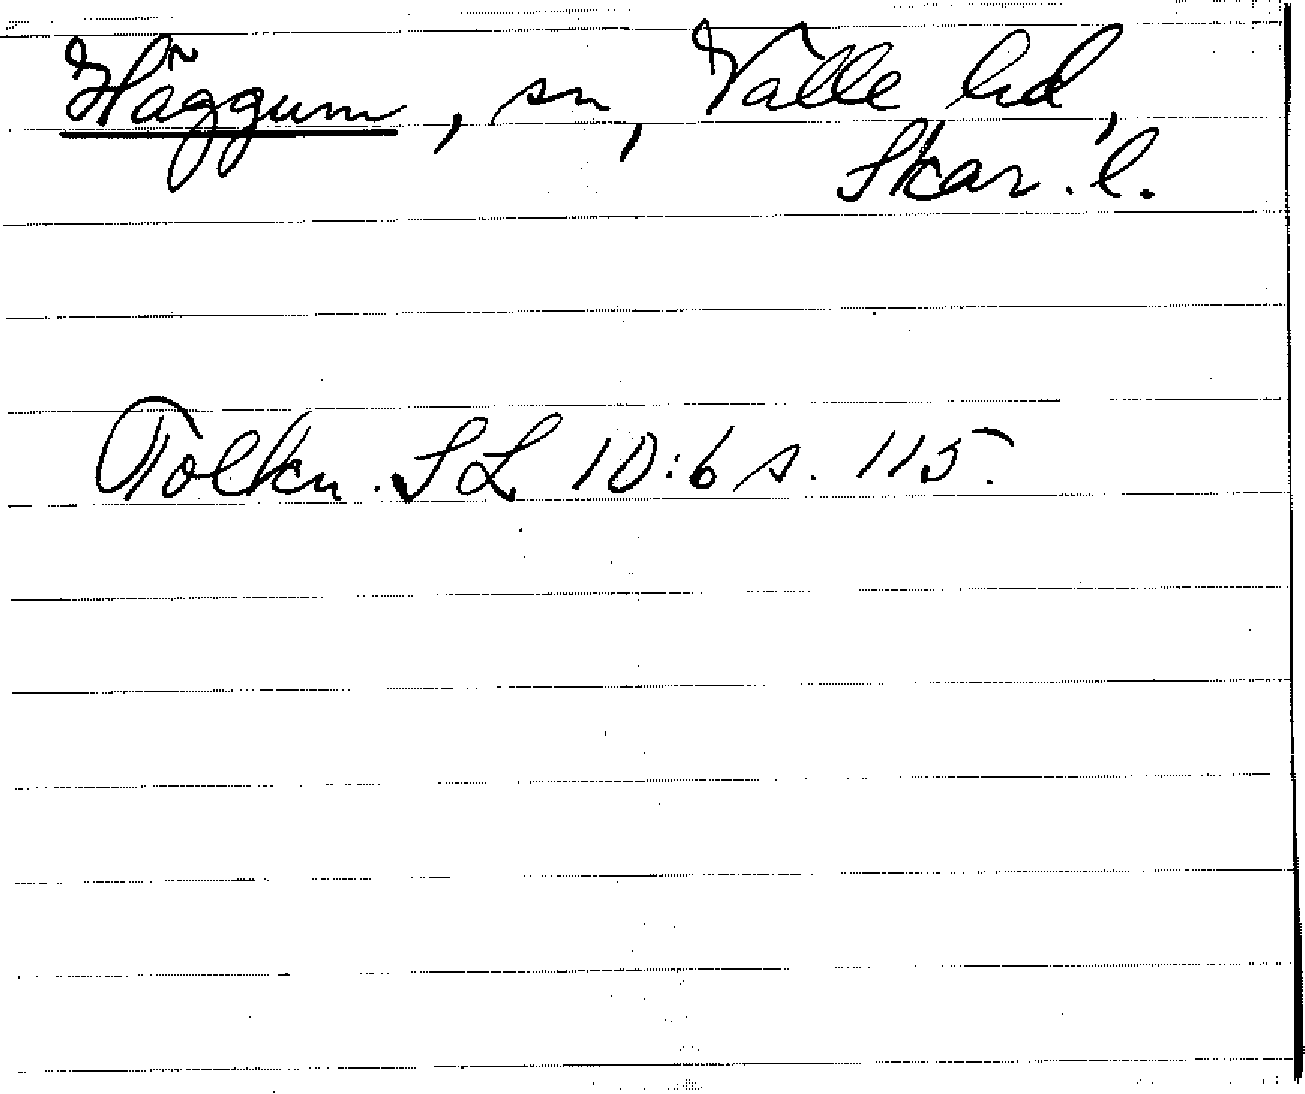 Häggum, sn, Valle hd,
Skar. l.
Tolkn. SL 10:6 s. 115.